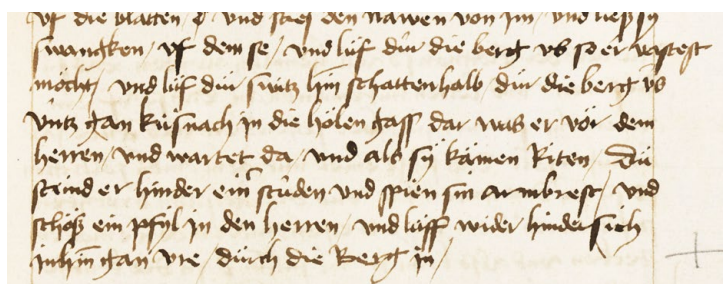 vf die blatten / d / vnd sties den nawen von im / vnd liess sy
swangken / vf dem se / vnd lüf dür die berg vs so er vastest
möcht / vnd lüf dür switz hin schattenhalb dür die berg vs
vntz gan küsnach in die holen gass dar was er vor dem
herren / vnd wartet da / vnd als sy kämen Riten / Dü
stund er hinder ein studen vnd spien sin armbrest / vnd
schoss ein pfyl in den herren / vnd lüff wider hindersich
inhin gan vre / dürch die Berg in /